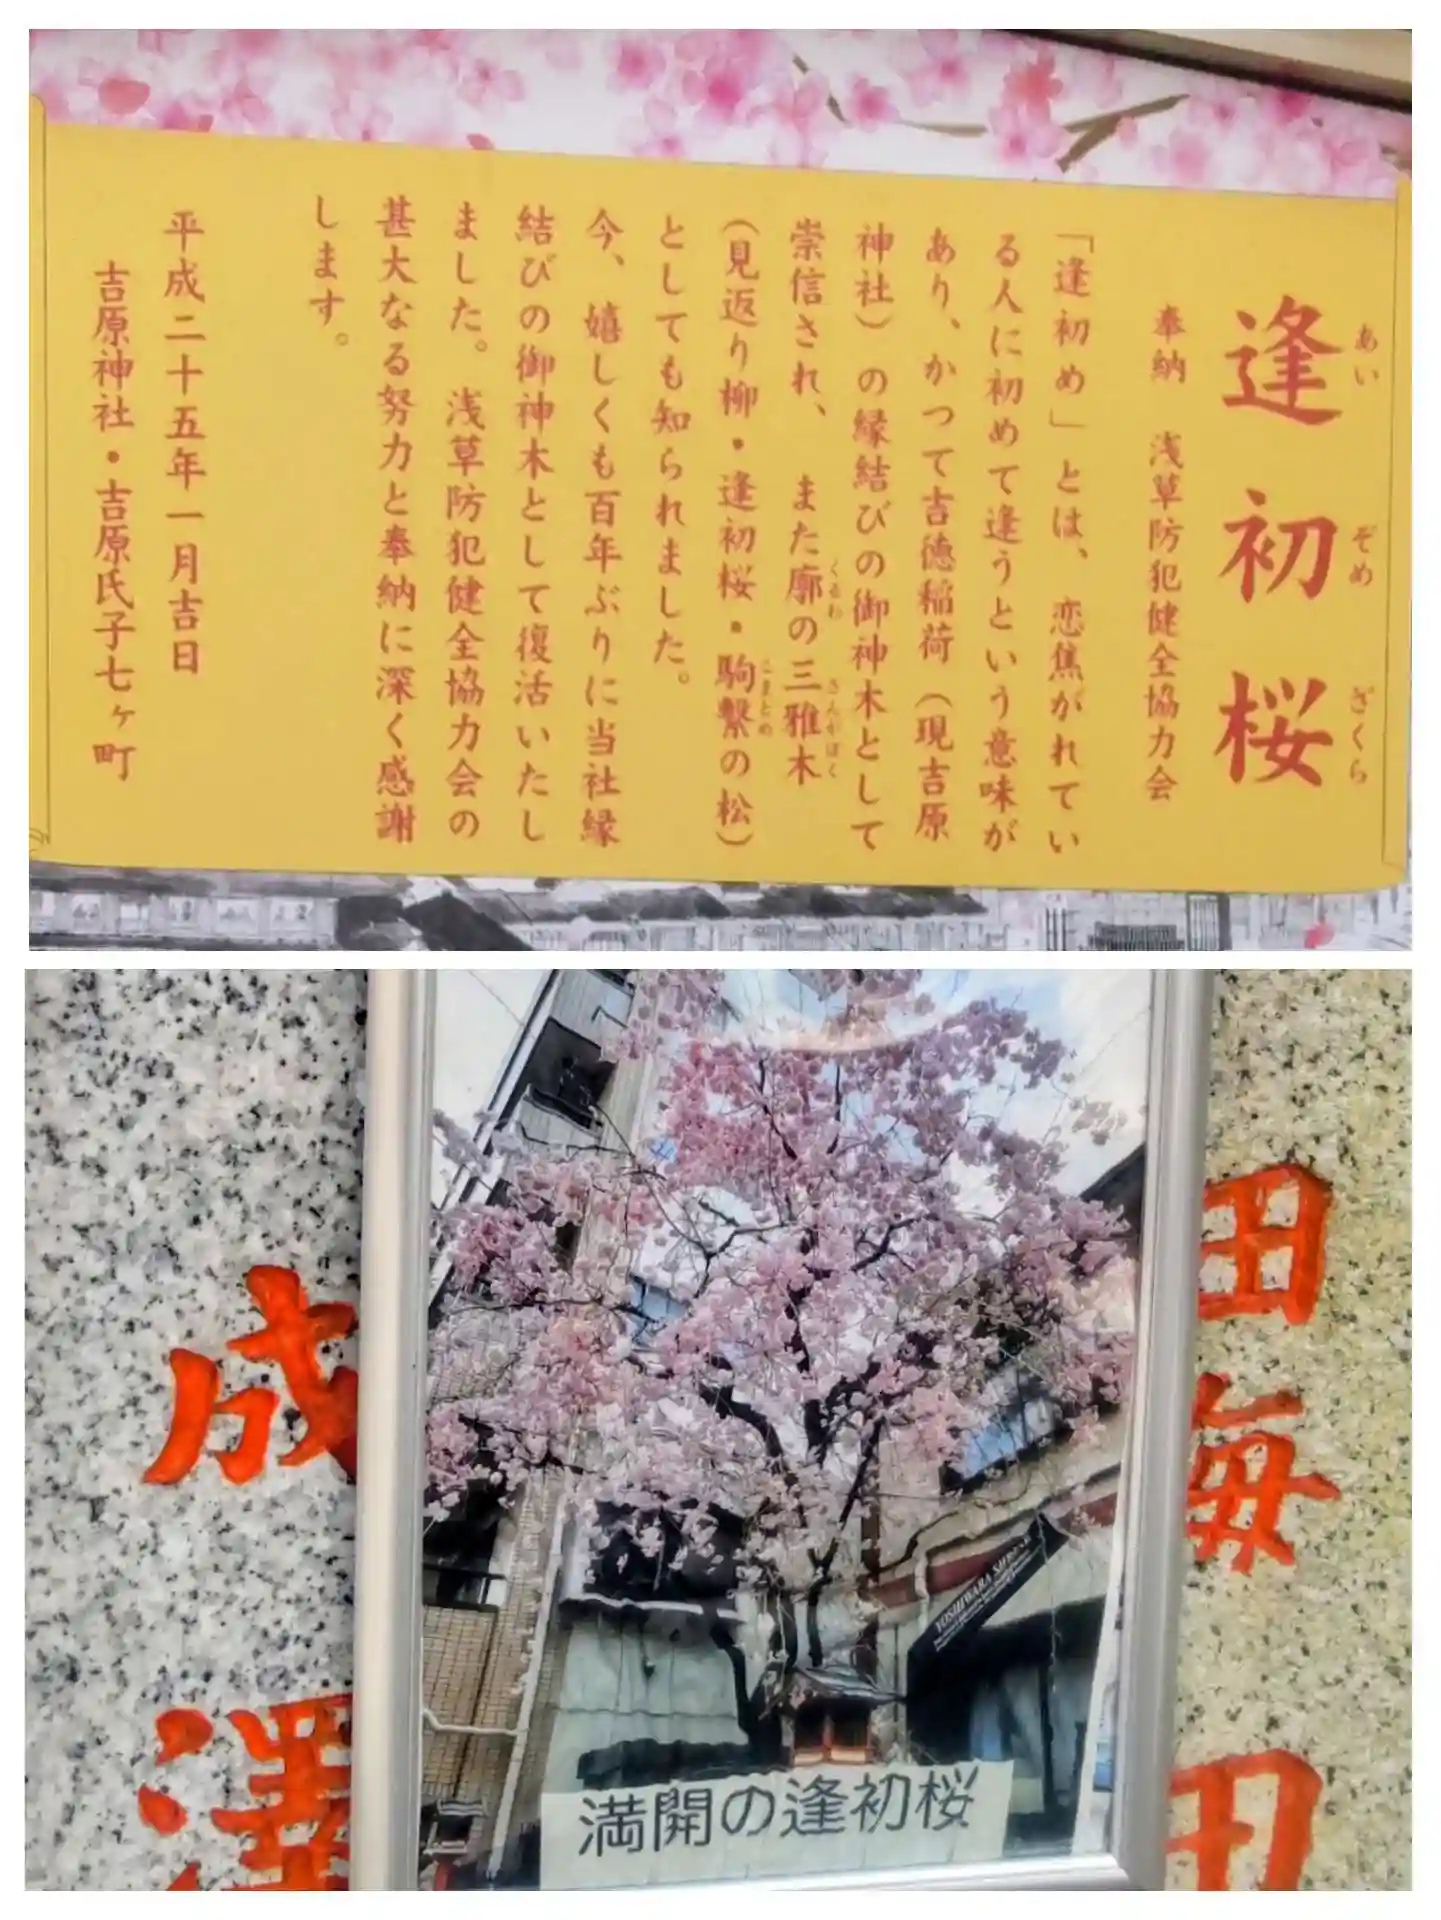 逢初桜
あいぞめざくら
奉納 浅草防犯健全協力会
「逢初め」とは、恋焦がれてい
る人に初めて逢うという意味が
あり、かつて吉徳稲荷（現吉原
神社）の縁結びの御神木として
崇信され、また廓の三雅木
くるわ さんがぼく
（見返り柳・逢初桜・駒繋の松）
こまとめ
としても知られました。
今、嬉しくも百年ぶりに当社縁
結びの御神木として復活いたし
ました。浅草防犯健全協力会の
甚大なる努力と奉納に深く感謝
します。
平成二十五年一月吉日
吉原神社・吉原氏子七ヶ町
田海田
成澤
YOSHIWARA SHRINE
満開の逢初桜